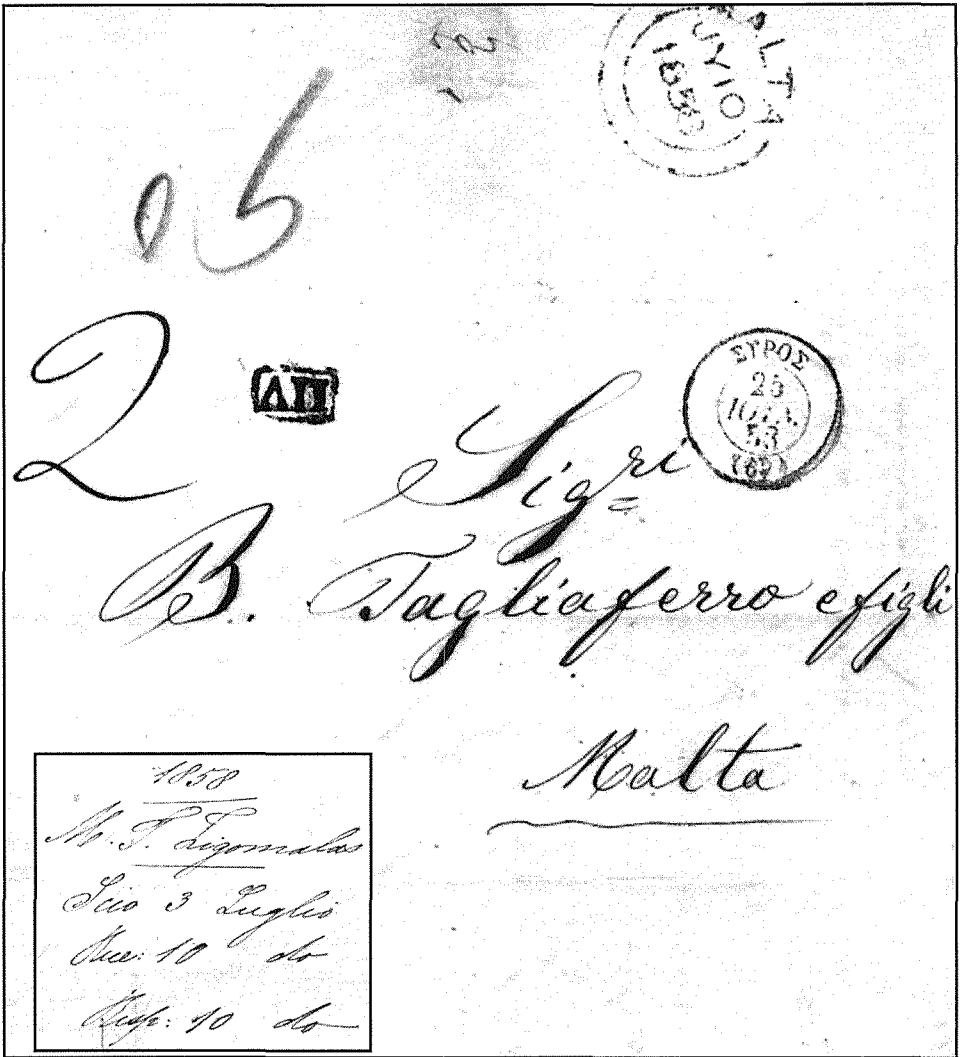 MALTA
JY 10
1858
06
2
ΑΠ
ΣΥΡΟΣ
25
ΙΟΥΝ.
58
(67)
Sigri
B. Tagliaferro e figli
Malta
1858
M. T. Ligomalas
Scio 3 Luglio
Ric: 10 do
Risp: 10 do